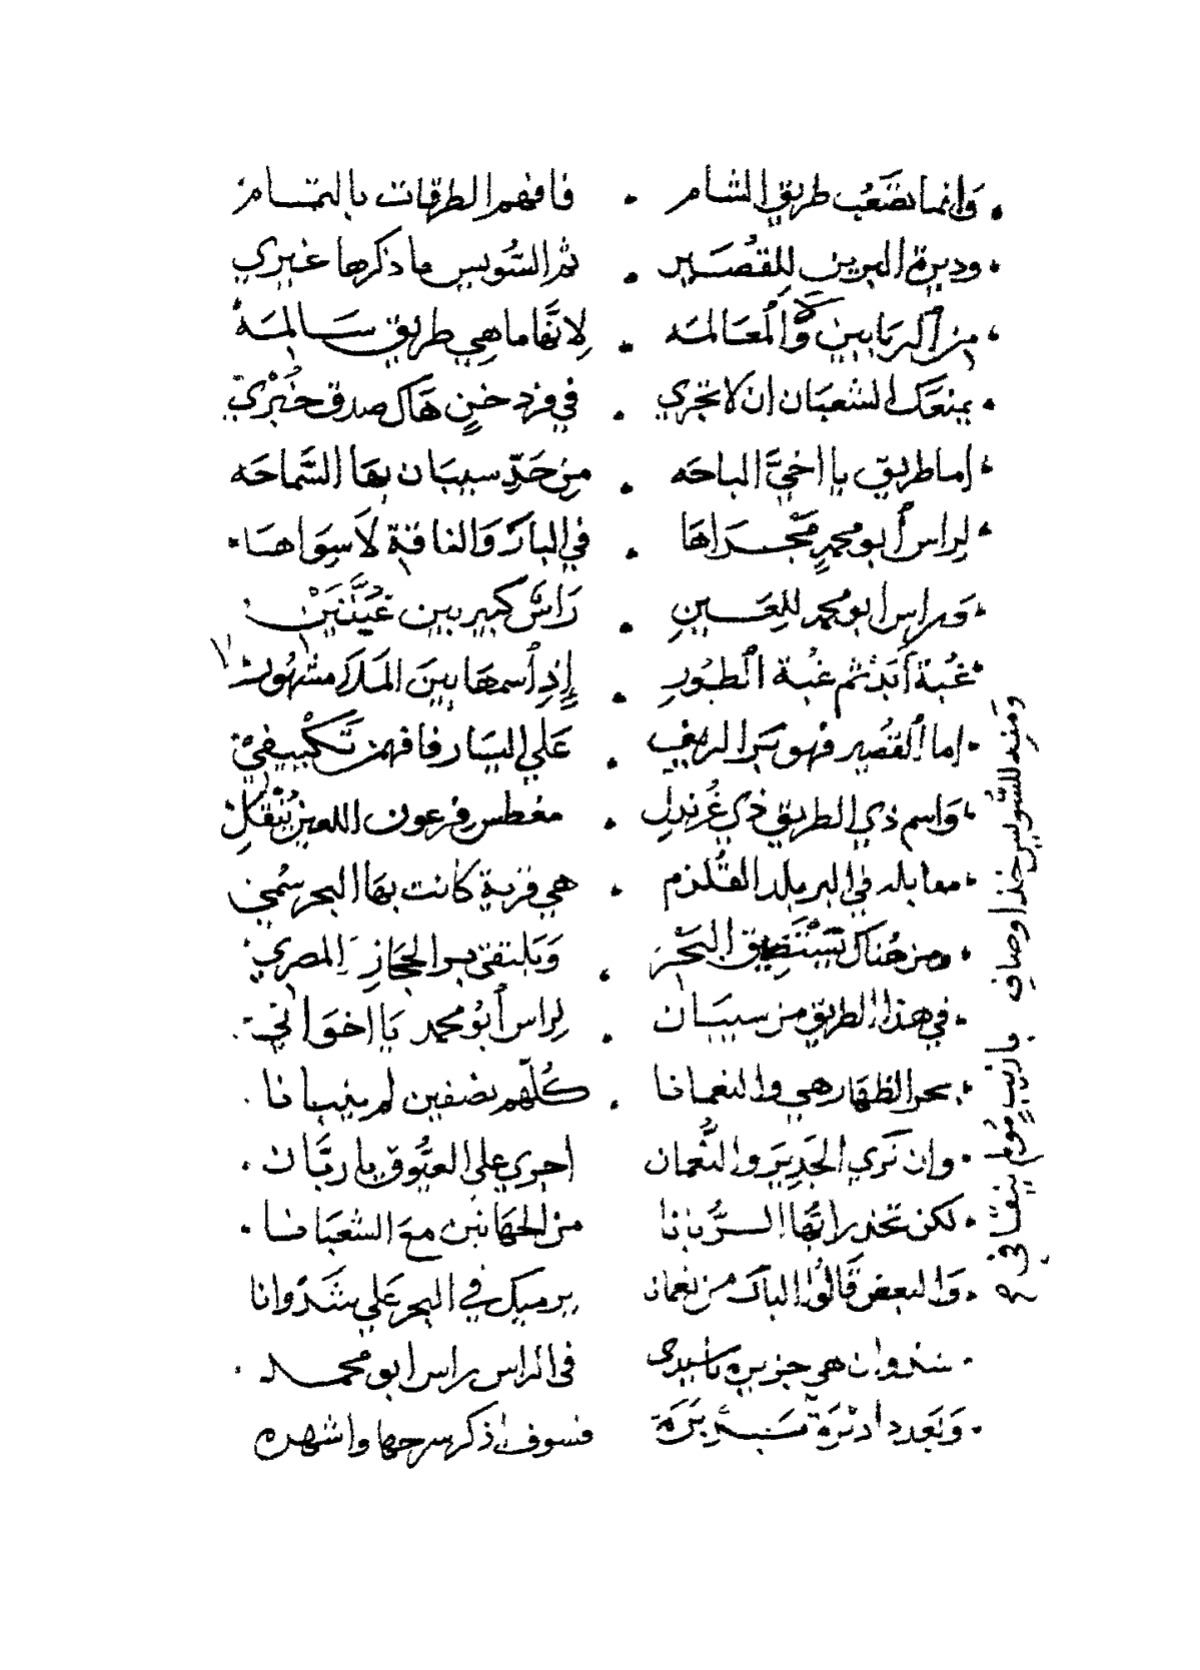 وَانما تصَعُب طريق الشام . فافهم الطرقات بالتمام
وديرة البرين للقُصَير . ثم السُّويس ما ذكرها غيري
من الربابين ولا المعَالمَه . لِانَّها ما هي طريق سَالِمَة
يمنعَك الشعبَان ان لا تجري . في فرد خنٍ هَاك صدق خُبْري
اما طريق يا اخيَّ الباحَه . من حَدِّ سيبَان بهَا السَّماحَه
لراس أبو محمدٍ مَجْراهَا . في البارْ وَالناقة لَا سِوَاهَا
وَراس ابو محمد للعَينِ . رَاسٌ كبير بين غُبَّتَينْ
غُبة أَبَدْ ثم غبْة الطُورِ . إِذِ أسمهَا بينَ المَلَا مشهُور
اما القُصير فهو بَر الريف . عَلي اليسَار فافهمن تَكْييفي
وَاسم ذي الطريق ذي غُرندلِ . مغطس فرعون اللعين
مقابله في البر بلد القُلزم . هي قرية كانت بهَا البحر سُمي
ومن هُناك البَحْرَ . وَيَلتقي بر الحجَازِ المصري
في هذا الطريق من سيبَان . لراس أبُو محمد يَا اخوَاني
بحر الظهَار هي والنعمانا . كُلّهم نصفين لم يبانا
وان تَري الجَدِيَر والنُّعمان . اجري علي العيُّوق يا ربَّان
لكن تحذر ايُّها الرُّبانا . من الجهَاتين مَع الشعبَانا
وَالبعض قَالُوا الباك من نعمان . يرميك في البحر عَلي شَدْوانا
شدوان هي جزيره يا سيدي . في الراس راس ابو محمد
وَبَعد ادْيرَة . فسوف اذكر شرحها واشهره
ومَنِد للسُّويس خذ اوصاف باريبٍ